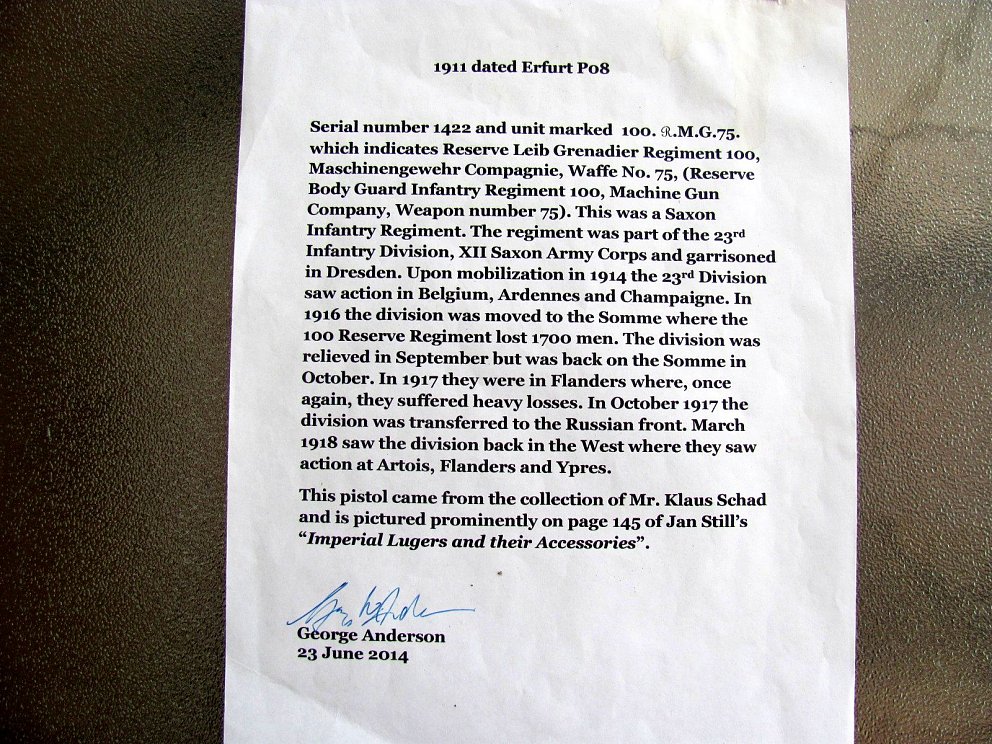 1911 dated Erfurt P08
Serial number 1422 and unit marked 100. ℛ.M.G.75.
which indicates Reserve Leib Grenadier Regiment 100,
Maschinengewehr Compagnie, Waffe No. 75, (Reserve
Body Guard Infantry Regiment 100, Machine Gun
Company, Weapon number 75). This was a Saxon
Infantry Regiment. The regiment was part of the 23rd
Infantry Division, XII Saxon Army Corps and garrisoned
in Dresden. Upon mobilization in 1914 the 23rd Division
saw action in Belgium, Ardennes and Champaigne. In
1916 the division was moved to the Somme where the
100 Reserve Regiment lost 1700 men. The division was
relieved in September but was back on the Somme in
October. In 1917 they were in Flanders where, once
again, they suffered heavy losses. In October 1917 the
division was transferred to the Russian front. March
1918 saw the division back in the West where they saw
action at Artois, Flanders and Ypres.
This pistol came from the collection of Mr. Klaus Schad
and is pictured prominently on page 145 of Jan Still's
“Imperial Lugers and their Accessories”.
George Anderson
23 June 2014